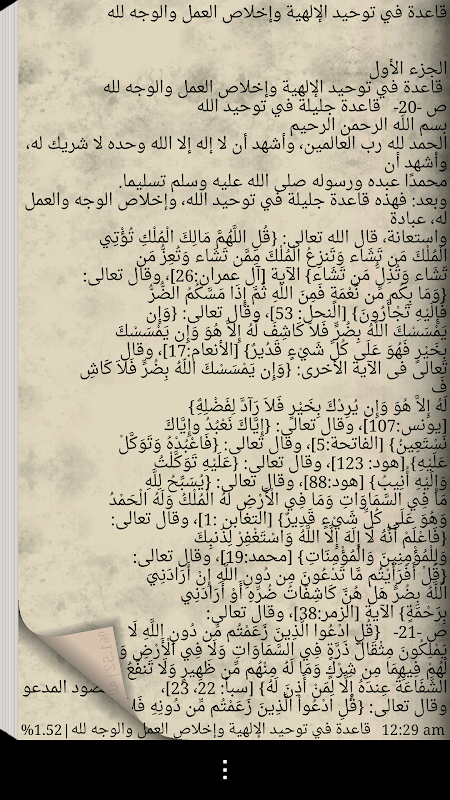 قاعدة في توحيد الإلهية وإخلاص العمل والوجه لله
الجزء الأول
قاعدة في توحيد الإلهية وإخلاص العمل والوجه لله
ص -20- قاعدة جليلة في توحيد الله
بسم الله الرحمن الرحيم
الحمد لله رب العالمين، وأشهد أن لا إله إلا الله وحده لا شريك له،
وأشهد أن
محمدًا عبده ورسوله صلى الله عليه وسلم تسليما.
وبعد: فهذه قاعدة جليلة في توحيد الله، وإخلاص الوجه والعمل
له، عبادة
واستعانة، قال الله تعالى: {قُلِ اللَّهُمَّ مَالِكَ الْمُلْكِ تُؤْتِي
الْمُلْكَ مَن تَشَاء وَتَنزِعُ الْمُلْكَ مِمَّن تَشَاء وَتُعِزُّ مَن
تَشَاء وَتُذِلُّ مَن تَشَاء} الآية [آل عمران:26]، وقال تعالى:
{وَمَا بِكُم مِّن نِّعْمَةٍ فَمِنَ اللّهِ ثُمَّ إِذَا مَسَّكُمُ الضُّرُّ
فَإِلَيْهِ تَجْأَرُونَ} [النحل: 53]، وقال تعالى: {وَإِن
يَمْسَسْكَ اللّهُ بِضُرٍّ فَلاَ كَاشِفَ لَهُ إِلاَّ هُوَ وَإِن يَمْسَسْكَ
بِخَيْرٍ فَهُوَ عَلَى كُلِّ شَيْءٍ قَدِيرٌ} [الأنعام:17]، وقال
تعالى فى الآية الأخرى: {وَإِن يَمْسَسْكَ اللّهُ بِضُرٍّ فَلاَ كَاشِ
فَ
لَهُ إِلاَّ هُوَ وَإِن يُرِدْكَ بِخَيْرٍ فَلاَ رَآدَّ لِفَضْلِهِ}
[يونس:107]، وقال تعالى: {إِيَّاكَ نَعْبُدُ وإِيَّاكَ
نَسْتَعِينُ} [الفاتحة:5]، وقال تعالى: {فَاعْبُدْهُ وَتَوَكَّلْ
عَلَيْهِ} [هود: 123]، وقال تعالى: {عَلَيْهِ تَوَكَّلْتُ
وَإِلَيْهِ أُنِيبُ} [هود:88]، وقال تعالى: {يُسَبِّحُ لِلَّهِ
مَا فِي السَّمَاوَاتِ وَمَا فِي الْأَرْضِ لَهُ الْمُلْكُ وَلَهُ الْحَمْدُ
وَهُوَ عَلَى كُلِّ شَيْءٍ قَدِيرٌ} [التغابن :1]، وقال تعالى:
{فَاعْلَمْ أَنَّهُ لَا إِلَهَ إِلَّا اللَّهُ وَاسْتَغْفِرْ لِذَنبِكَ
وَلِلْمُؤْمِنِينَ وَالْمُؤْمِنَاتِ} [محمد:19]، وقال تعالى:
{قُلْ أَفَرَأَيْتُم مَّا تَدْعُونَ مِن دُونِ اللَّهِ إِنْ أَرَادَنِيَ
اللَّهُ بِضُرٍّ هَلْ هُنَّ كَاشِفَاتُ ضُرِّهِ أَوْ أَرَادَنِي
بِرَحْمَةٍ} الآية [الزمر:38]، وقال تعالى:
ص -21- {قُلِ ادْعُوا الَّذِينَ زَعَمْتُم مِّن دُونِ اللَّهِ لَا
يَمْلِكُونَ مِثْقَالَ ذَرَّةٍ فِي السَّمَاوَاتِ وَلَا فِي الْأَرْضِ وَ
لَهُمْ فِيهِمَا مِن شِرْكٍ وَمَا لَهُ مِنْهُم مِّن ظَهِيرٍ وَلَا تَنفَعُ
الشَّفَاعَةُ عِندَهُ إِلَّا لِمَنْ أَذِنَ لَهُ} [سبأ: 22، 23]، المدعو
وقال تعالى: {قُلِ ادْعُواْ الَّذِينَ زَعَمْتُم مِّن دُونِهِ فَلاَ
12:29 am قاعدة في توحيد الإلهية وإخلاص العمل والوجه لله | %1.52